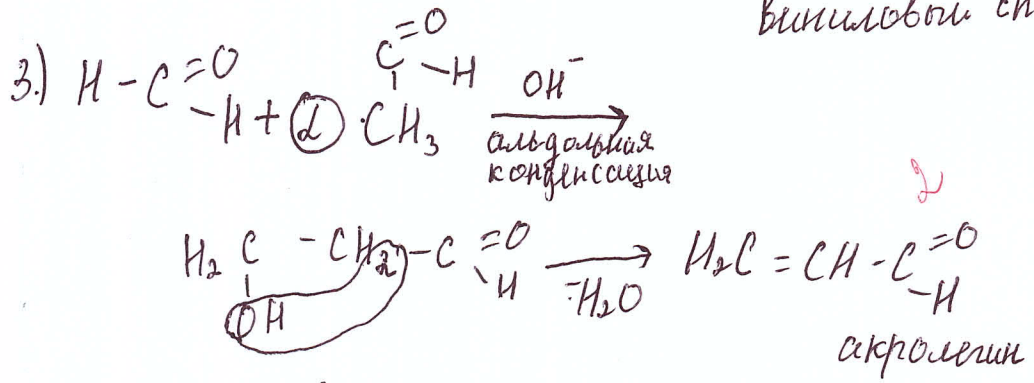 виниловый сп
3.) H - C =O -H + α ·CH₃ C =O -H OH⁻
альдольная
конденсация
2
H₂C - CH₂ - C =O -H OH -H₂O H₂C = CH - C =O -H
акролеин